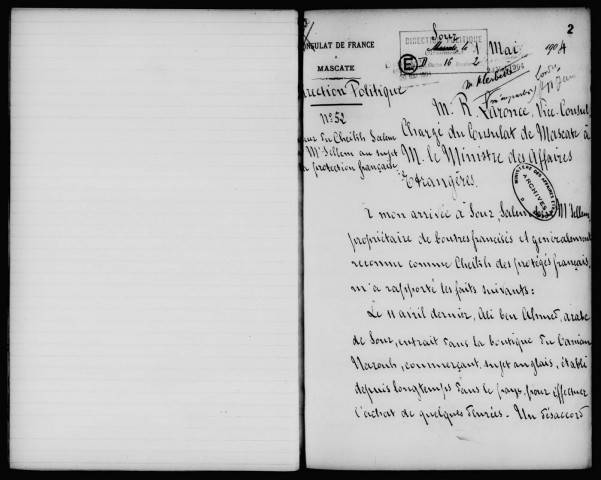 2
Sour
DIRECTION POLITIQUE
CONSULAT DE FRANCE
MASCATE
Mascate, le 1 Mai 1904
E
D 16 2
Direction Politique
N° 52
M. R. Laronce, Vice-Consul,
Chargé du Consulat de Mascate à
M. le Ministre des Affaires
Etrangères.
du Cheikh Salem
Mt Sellem au sujet
protection française
ARCHIVES
A mon arrivée à Sour, Salem Mt Sellem,
propriétaire de boutres francisés et généralement
reconnu comme Cheikh des protégés français,
m'a rapporté les faits suivants:
Le 11 avril dernier, Ali ben Ahmed, arabe
de Sour, entrait dans la boutique du Banian
commerçant, sujet anglais, établi
depuis longtemps dans le pays, pour effectuer
l'achat de quelques denrées. Un désaccord